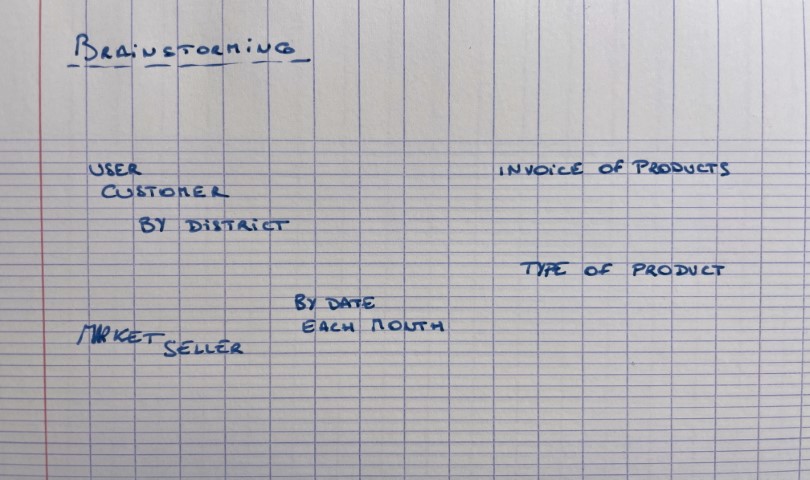 BRAINSTORMING
USER
CUSTOMER
BY DISTRICT
INVOICE OF PRODUCTS
TYPE OF PRODUCT
BY DATE
EACH MONTH
MARKET
SELLER